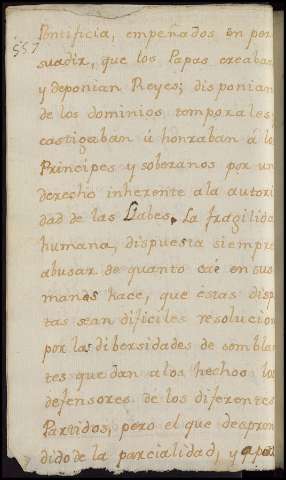 557
Pontificia, empeñados en per
suadir, que los Papas creaban
y deponian Reyes; disponian
de los dominios temporales,
castigaban ú honraban á los
Principes y soberanos por un
derecho inherente ala autori
dad de las Llabes. La fragilida
humana, dispuesta siempre
abusar de quanto cáe en sus
manos hace, que éstas disp
tas sean dificiles resolucion
por las dibersidades de sembla
tes que dan alos hechos los
defensores de los diferentes
Partidos, pero el que despren
dido de la parcialidad, y